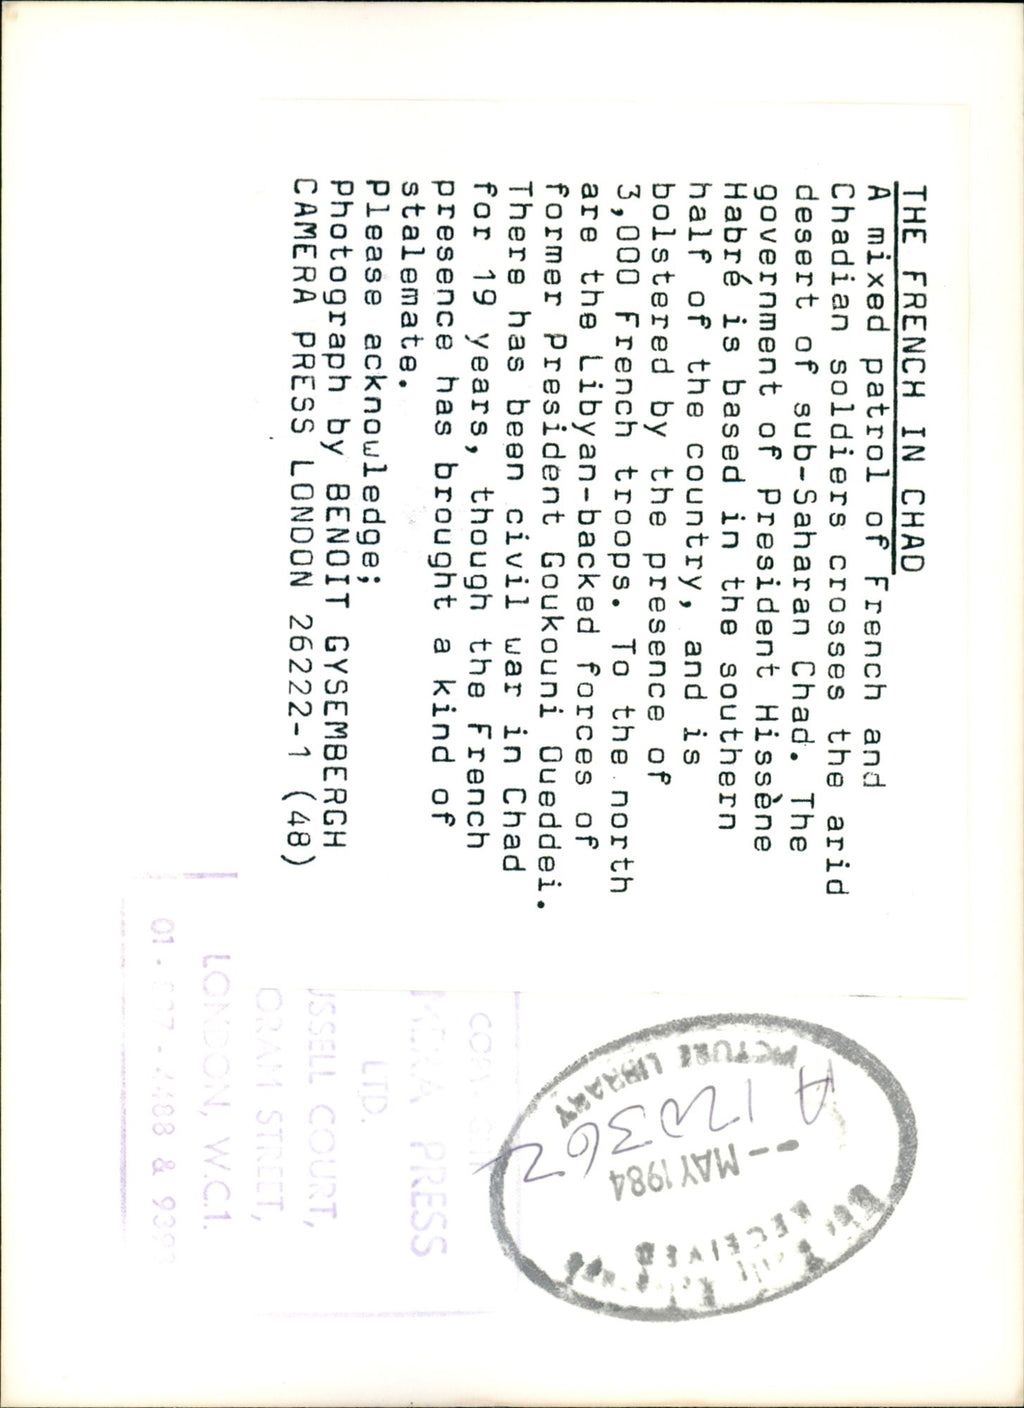 THE FRENCH IN CHAD
A mixed patrol of French and
Chadian soldiers crosses the arid
desert of sub-Saharan Chad. The
government of President Hissène
Habré is based in the southern
half of the country, and is
bolstered by the presence of
3,000 French troops. To the north
are the Libyan-backed forces of
former President Goukouni Oueddei.
There has been civil war in Chad
for 19 years, though the French
presence has brought a kind of
stalemate.
Please acknowledge;
Photograph by BENOIT GYSEMBERGH
CAMERA PRESS LONDON 26222-1 (48)
PRESS
LTD.
USSELL COURT,
ORAM STREET,
LONDON, W.C.1.
PICTURE LIBRARY
A120362
-- MAY 1984
RECEIVED